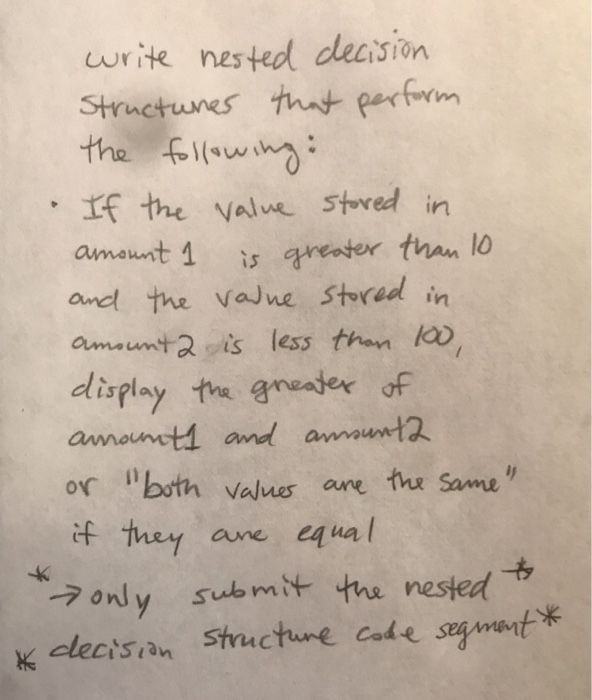 write nested decision
Structures that perform
the following:
• If the value stored in
amount 1 is greater than 10
and the value stored in
amount2 is less than 100,
display the greater of
amount1 and amount2
or "both values are the same"
if they are equal
* → only submit the nested *
* decision structure code segment *